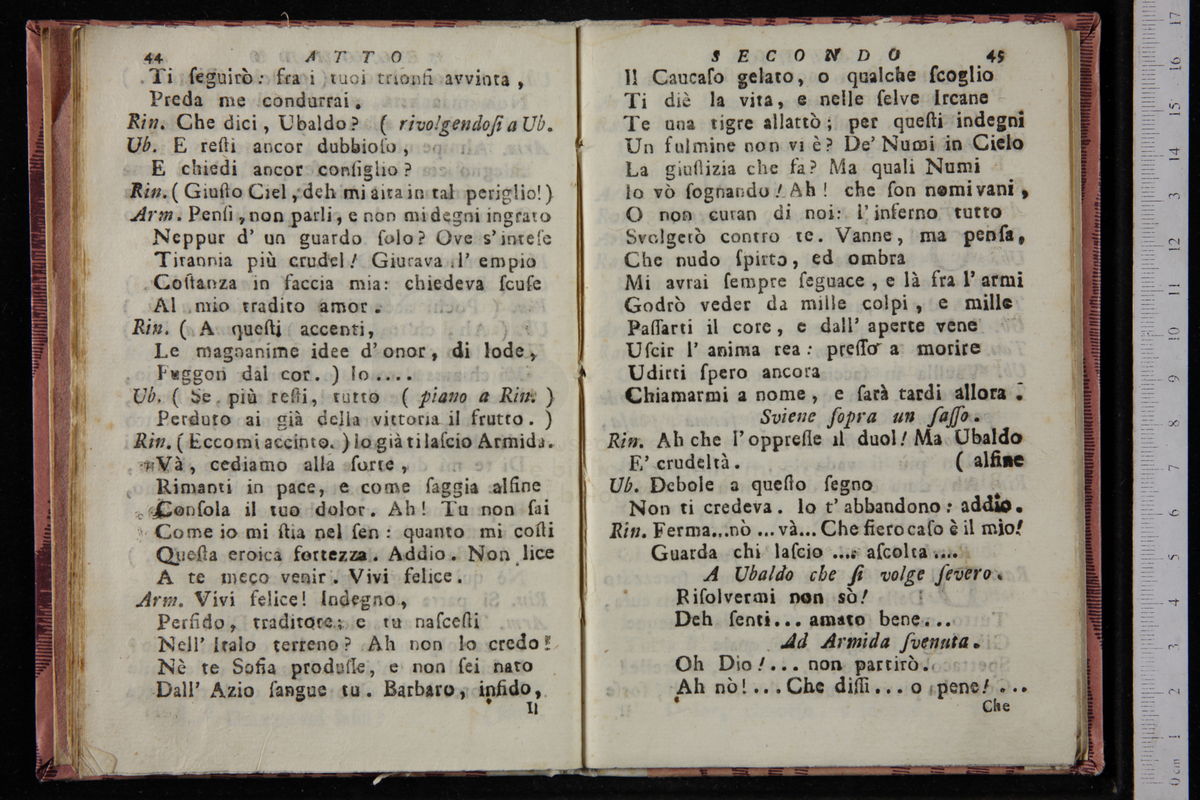 44 ATTO
Ti ſeguirò: fra i tuoi trionfi avvinta,
Preda me condurrai.
Rin. Che dici, Ubaldo? ( rivolgendoſi a Ub.
Ub. E reſti ancor dubbioſo,
E chiedi ancor conſiglio?
Rin. ( Giuſto Ciel, deh mi aita in tal periglio! )
Arm. Penſi, non parli, e non mi degni ingrato
Neppur d' un guardo ſolo? Ove s' inteſe
Tirannia più crudel! Giurava l' empio
Coſtanza in faccia mia: chiedeva ſcuſe
Al mio tradito amor.
Rin. ( A queſti accenti,
Le magnanime idee d' onor, di lode,
Fuggon dal cor. ) Io....
Ub. ( Se più reſti, tutto ( piano a Rin. )
Perduto ai già della vittoria il frutto. )
Rin. ( Eccomi accinto. ) Io già ti laſcio Armida.
Và, cediamo alla ſorte,
Rimanti in pace, e come ſaggia alfine
Conſola il tuo dolor. Ah! Tu non ſai
Come io mi ſtia nel ſen: quanto mi coſti
Queſta eroica fortezza. Addio. Non lice
A te meco venir. Vivi felice.
Arm. Vivi felice! Indegno,
Perfido, traditore; e tu naſceſti
Nell' Italo terreno? Ah non lo credo!
Nè te Sofia produſſe, e non ſei nato
Dall' Azio ſangue tu. Barbaro, infido,
Il
SECONDO 45
Il Caucaſo gelato, o qualche ſcoglio
Ti diè la vita, e nelle ſelve Ircane
Te una tigre allattò; per queſti indegni
Un fulmine non vi è? De' Numi in Cielo
La giuſtizia che fa? Ma quali Numi
Io vò ſognando! Ah! che ſon nomi vani,
O non curan di noi: l' inferno tutto
Svolgerò contro te. Vanne, ma penſa,
Che nudo ſpirto, ed ombra
Mi avrai ſempre ſeguace, e là fra l' armi
Godrò veder da mille colpi, e mille
Paſſarti il core, e dall' aperte vene
Uſcir l' anima rea: preſſo a morire
Udirti ſpero ancora
Chiamarmi a nome, e ſarà tardi allora.
Sviene ſopra un ſaſſo.
Rin. Ah che l' oppreſſe il duol! Ma Ubaldo
E' crudeltà. ( alfine
Ub. Debole a queſto ſegno
Non ti credeva. Io t' abbandono: addio.
Rin. Ferma...nò ...và... Che fiero caſo è il mio!
Guarda chi laſcio .... aſcolta ....
A Ubaldo che ſi volge ſevero.
Riſolvermi non sò!
Deh ſenti... amato bene...
Ad Armida ſvenuta.
Oh Dio!... non partirò.
Ah nò!... Che diſſi... o pene! ...
Che
17
16
15
14
13
12
11
10
9
8
7
6
5
4
3
2
1
0 cm